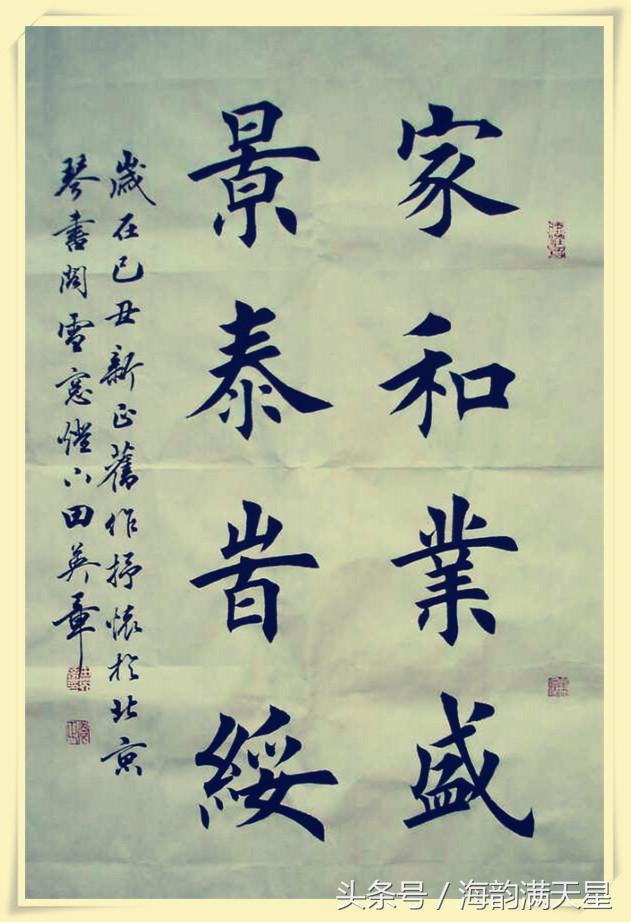 家和業盛
景泰旹綏
歲在己丑新正舊作抒懷於北京
琴書閣雪窓燈下田英章
头条号 / 海韵满天星